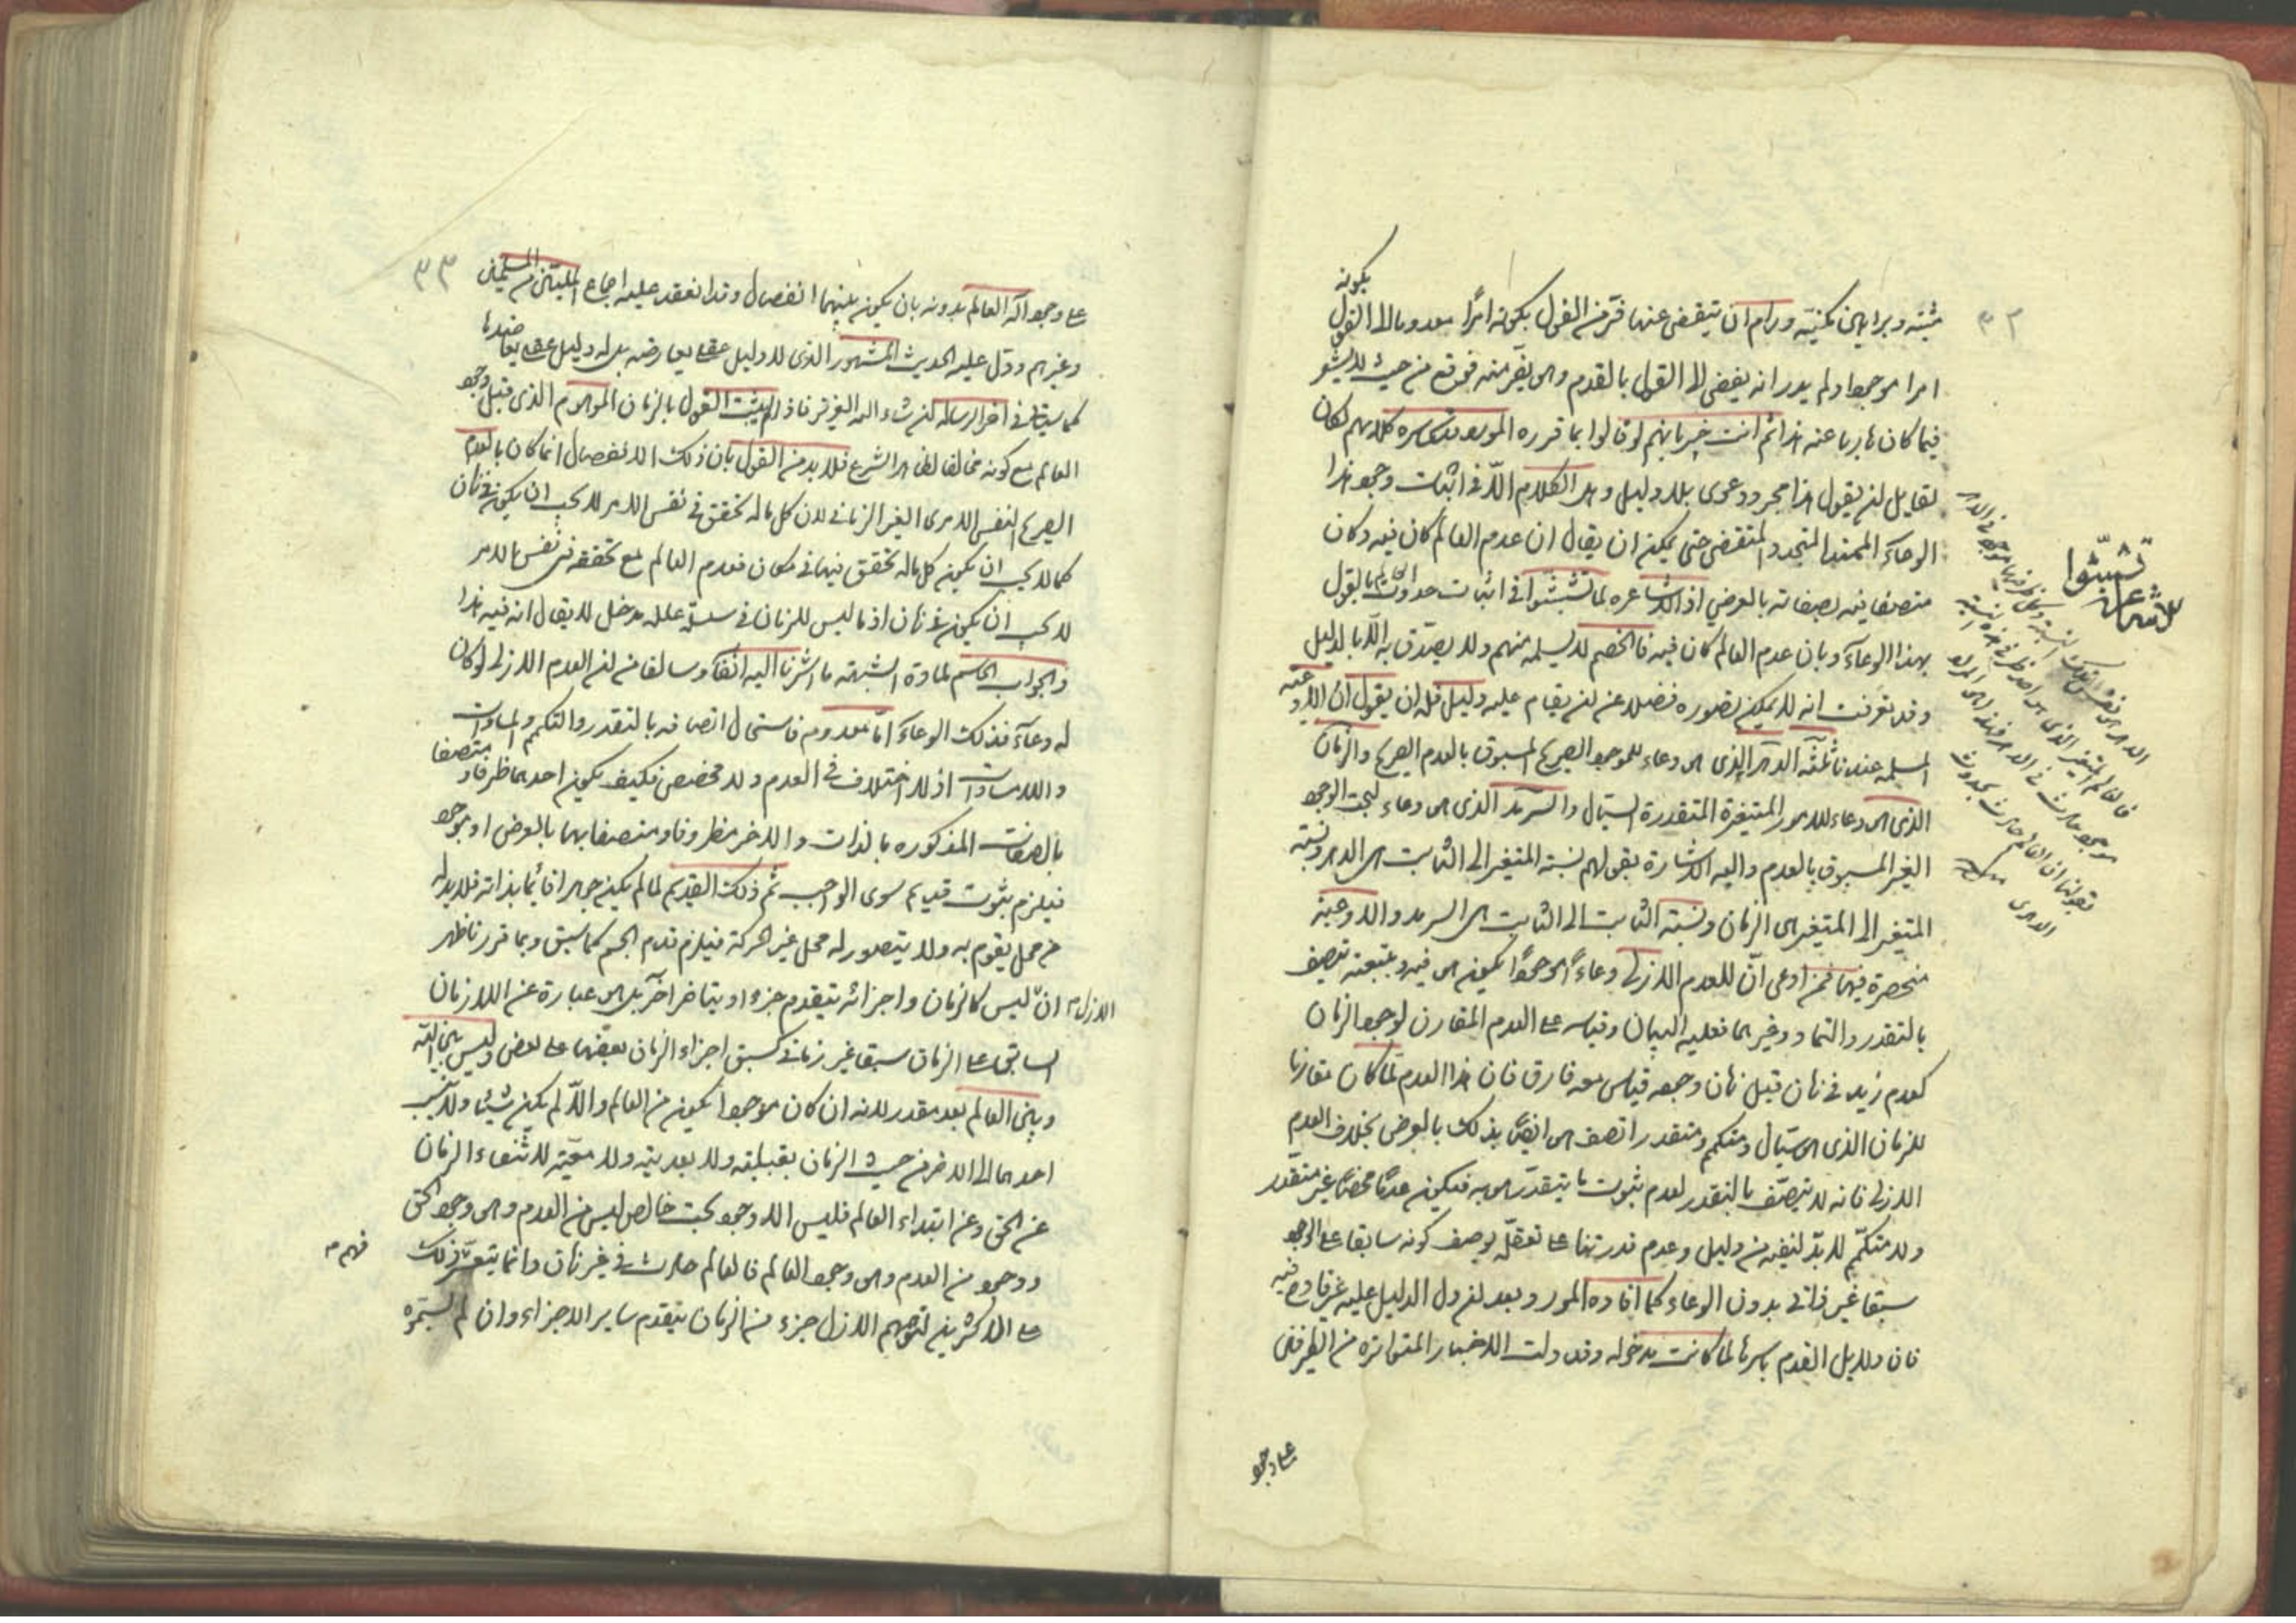 ٣٢
بكونه
مثبته وبراهين مكنيته ورام ان يتقضى عنها فر من القول بكونه امرا معدوما الى القول
امرا موجودا ولم يدر انه يفضى الى القول بالقدم وهو يفر منه فوقع من حيث لا يشعر
فيما كان هاربا عنه هذا ثم انت خبير بانهم لو قالوا بما قرره المورد كلامهم لكان
لقايل ان يقول هذا مجرد دعوى بلا دليل وهل الكلام الا في اثبات وجود هذا
الوعاء الممتد المتجدد المتقضى حتى يمكن ان يقال ان عدم العالم كان فيه وكان
متصفا فيه بصفاته بالعرض اذ الاشاعره لما تشبثوا في اثبات حدوث العالم بالقول
بهذا الوعاء وبان عدم العالم كان فيه فالخصم لا يسلمه منهم ولا يصدق به الا بالدليل
وقد عرفت انه لا يمكن تصوره فضلا عن ان يقام عليه دليل فله ان يقول ان الاوعيه
المسلمه عندنا ثلثة الدهر الذى هو وعاء للموجود الصريح المسبوق بالعدم الصريح والزمان
الذى هو وعاء للامور المتغيرة المتقدرة السيال والسرمد الذى هو وعاء لبحت الوجود
الغير المسبوق بالعدم واليه الاشارة بقولهم نسبة المتغير الى الثابت هو الدهر ونسبة
المتغير الى المتغير هو الزمان ونسبة الثابت الى الثابت هو السرمد والاوعية
منحصرة فيها فمن ادعى ان للعدم الازلى وعاءً موجودًا يكون هو فيه وبتبعيته يتصف
بالتقدر والتماد وغيرهما فعليه البيان وقياسه على العدم المقارن لوجود الزمان
كعدم زيد في زمان قبل زمان وجوده قياس مع فارق فان هذا العدم لما كان مقارنا
للزمان الذى هو سيال ومتكمم ومتقدر اتصف هو ايضًا بذلك بالعرض بخلاف العدم
الازلى فانه لا يتصف بالتقدر لعدم ثبوت ما يتقدر هو به فيكون عدمًا محضًا غير متقدر
ولا متكمم لا بد لنفيه من دليل وعدم قدرتنا على تعقله بوصف كونه سابقا على الوجود
سبقا غير ذاتى بدون الوعاء كما افاده المورد بعد ان دل الدليل عليه غير قادح فيه
فان دلايل القدم باسرها لما كانت مدخوله وقد دلت الاخبار المتواترة من الطرفين
على وجود
تشبثوا
للاشاعره
٣٣
على وجود اله العالم بدونه بان يكون بينهما انفصال وقد انعقد عليه اجماع المليين من المسلمين
وغيرهم ودل عليه الحديث المشهور الذى لا دليل عقلى يعارضه بل له دليل عقلى يعاضدها
كما سياتى في اخر الرساله ان شاء الله العزيز فاذا لم يثبت القول بالزمان الموهوم الذى قبل وجود
العالم مع كونه مخالفا لظاهر الشرع فلا بد من القول بان ذلك الانفصال انما كان بالعدم
الصريح لنفس الامرى الغير الزمانى لان كل ماله تحقق في نفس الامر لا يجب ان يكون في زمان
كما لا يجب ان يكون كل ماله تحقق فيها في مكان فعدم العالم مع تحققه في نفس الامر
لا يجب ان يكون في زمان اذ ما ليس للزمان في سلسلة علله مدخل لا يقال انه فيه هذا
والجواب الحاسم لمادة الشبهة ما اشرنا اليه انفا وسالفا من ان العدم الازلى لو كان
له وعاء فذلك الوعاء اما معدوم فاستحال اتصافه بالتقدر والتكمم والمساوات
واللامساوات اذ لا اختلاف في العدم ولا مخصص فكيف يكون احدهما ظرفا و متصفا
بالصفات المذكوره بالذات والاخر مظروفا ومتصفا بهما بالعرض او موجود
فيلزم ثبوت قديم سوى الواجب ثم ذلك القديم لما لم يكن جوهرا قائما بذاته فلا بد له
من محل يقوم به ولا يتصور له محل غير الحركة فيلزم قدم الجسم كما سبق وبما قررنا ظهر
ان الازل ليس كالزمان واجزائه يتقدم جزء او يتاخر آخر بل هو عبارة عن اللازمان
السابق على الزمان سبقا غير زمانى كسبق اجزاء الزمان بعضها على بعض وليس بين الله
وبين العالم بعد مقدر لانه ان كان موجودا يكون من العالم والا لم يكن شيئا ولا ينسب
احدهما الى الاخر من حيث الزمان بقبلية ولا بعدية ولا معية لانتفاء الزمان
عن الحق وعن ابتداء العالم فليس الا وجود بحت خالص ليس من العدم وهو وجود الحق
ووجود من العدم وهو وجود العالم فالعالم حادث في غير زمان وانما يتعسر فهم ذلك
على الاكثرين لتوهمهم الازل جزء من الزمان يتقدم ساير الاجزاء وان لم يسموه